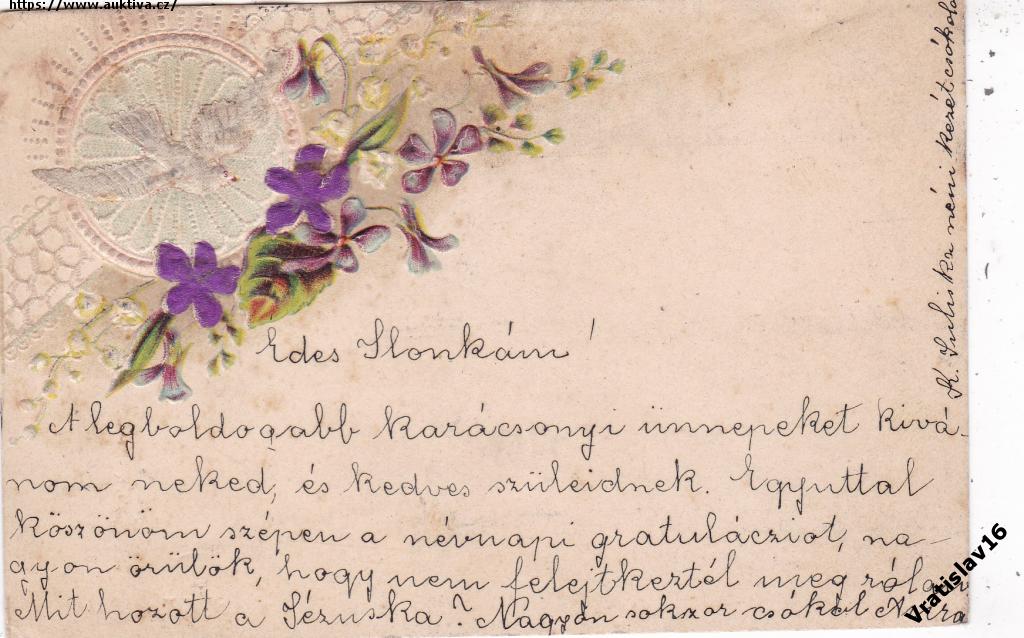 https://www.auktiva.cz/
Edes Ilonkám!
A legboldogabb karácsonyi ünnepeket kivá-
nom neked, és kedves szüleidnek. Egyuttal
köszönöm szépen a névnapi gratulácziot, na-
gyon örülök, hogy nem felejtkeztél meg rólam
Mit hozott a Jézuska? Nagyon sokszor csókol
K. Juliska néni kezét csókolo
Vratislav16